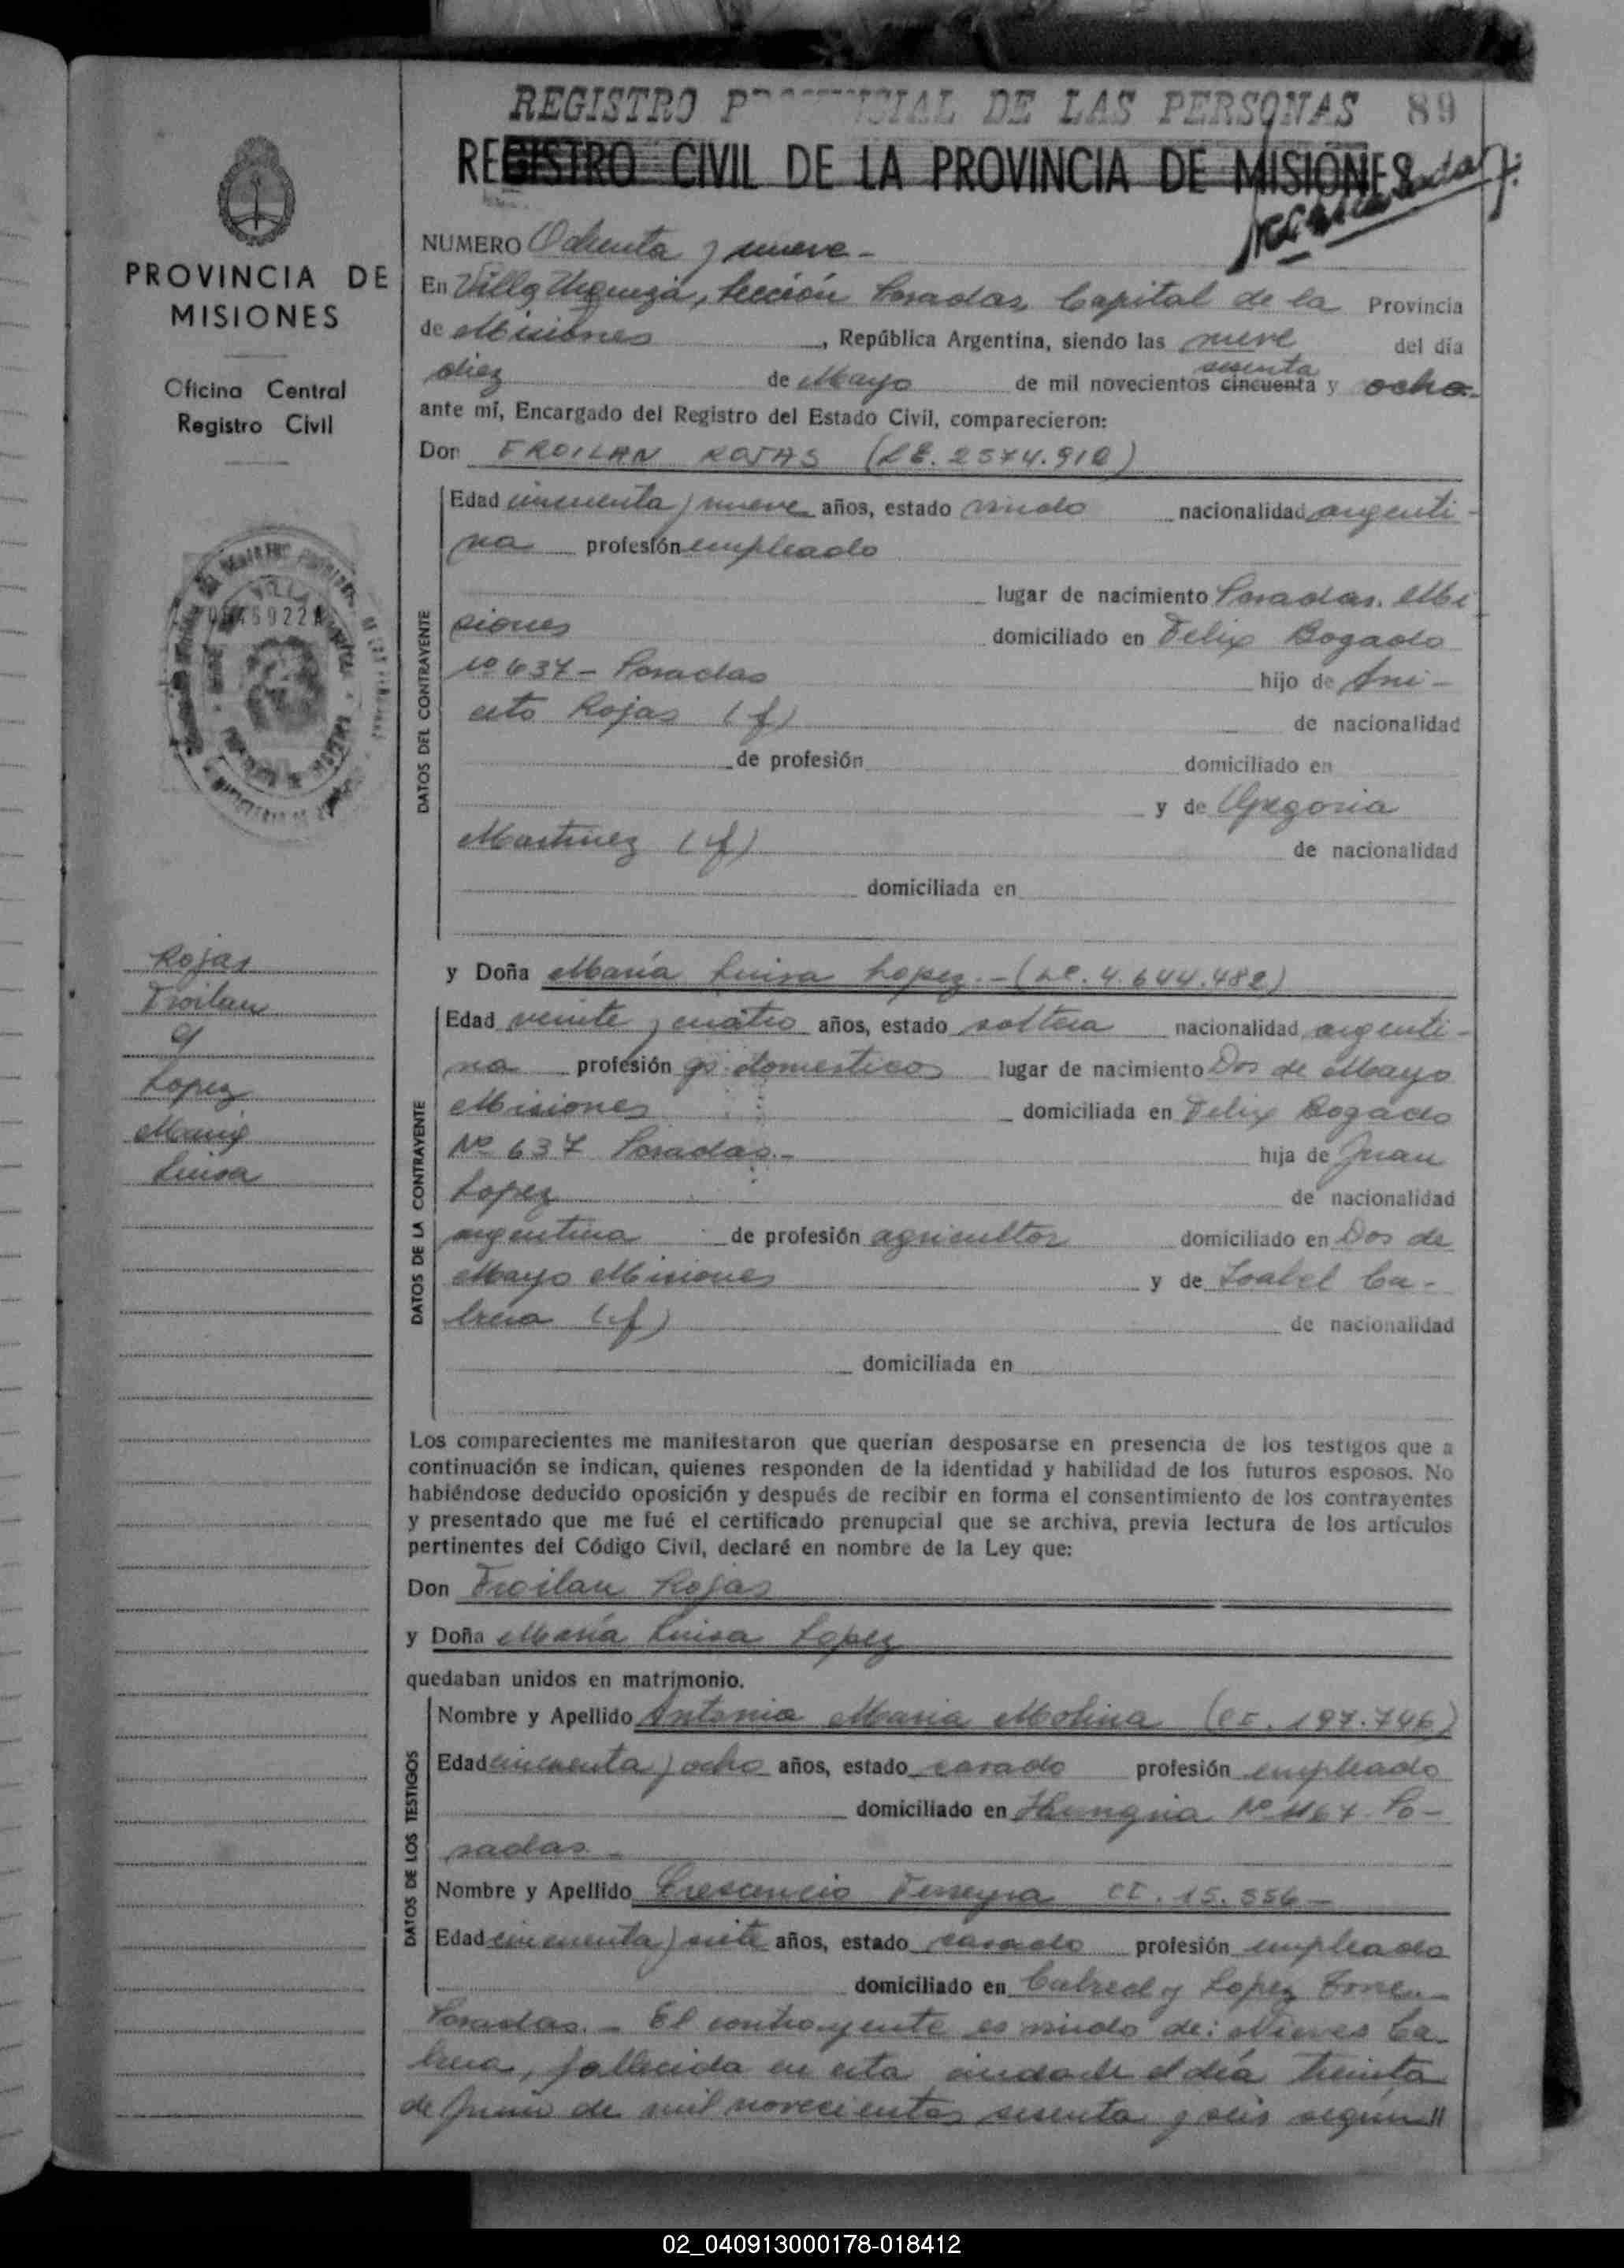 REGISTRO PROVINCIAL DE LAS PERSONAS 89
REGISTRO CIVIL DE LA PROVINCIA DE MISIONES
PROVINCIA DE
MISIONES
Oficina Central
Registro Civil
Rojas
Froilan
y
Lopez
María
Luisa
NUMERO Ochenta y nueve -
En Villa Urquiza, Sección Posadas Capital de la Provincia
de Misiones, República Argentina, siendo las nueve del día
diez de Mayo de mil novecientos cincuenta sesenta y ocho.
ante mí, Encargado del Registro del Estado Civil, comparecieron:
Don FROILAN ROJAS (LE. 2574.910)
DATOS DEL CONTRAYENTE
Edad cincuenta y nueve años, estado viudo nacionalidad argenti-
na profesión empleado
lugar de nacimiento Posadas. Mi
siones domiciliado en Felix Bogado
No 637 - Posadas hijo de Ani-
ceto Rojas (f) de nacionalidad
de profesión domiciliado en
y de Gregoria
Martinez (f) de nacionalidad
domiciliada en
y Doña María Luisa Lopez. - (LC. 4.644.482)
DATOS DE LA CONTRAYENTE
Edad veinte y cuatro años, estado soltera nacionalidad argenti-
na profesión qs. domesticos lugar de nacimiento Dos de Mayo
Misiones domiciliada en Felix Bogado
No 637 Posadas.- hija de Juan
Lopez de nacionalidad
argentina de profesión agricultor domiciliado en Dos de
Mayo Misiones y de Isabel Ca-
brera (f) de nacionalidad
domiciliada en
Los comparecientes me manifestaron que querían desposarse en presencia de los testigos que a
continuación se indican, quienes responden de la identidad y habilidad de los futuros esposos. No
habiéndose deducido oposición y después de recibir en forma el consentimiento de los contrayentes
y presentado que me fué el certificado prenupcial que se archiva, previa lectura de los artículos
pertinentes del Código Civil, declaré en nombre de la Ley que:
Don Froilan Rojas
y Doña María Luisa Lopez
quedaban unidos en matrimonio.
DATOS DE LOS TESTIGOS
Nombre y Apellido Antonio Maria Molina (CI. 197.746)
Edad cincuenta y ocho años, estado casado profesión empleado
domiciliado en Hungria No 1167 Po-
sadas. -
Nombre y Apellido Crescencio Ferreyra CI. 15.556 -
Edad cincuenta y siete años, estado casado profesión empleado
domiciliado en Cabred y Lopez Torres-
Posadas. - El contrayente es viudo de: Nieves Ca-
brera, fallecida en esta ciudad el día treinta
de Junio de mil novecientos sesenta y seis según //
02_040913000178-018412